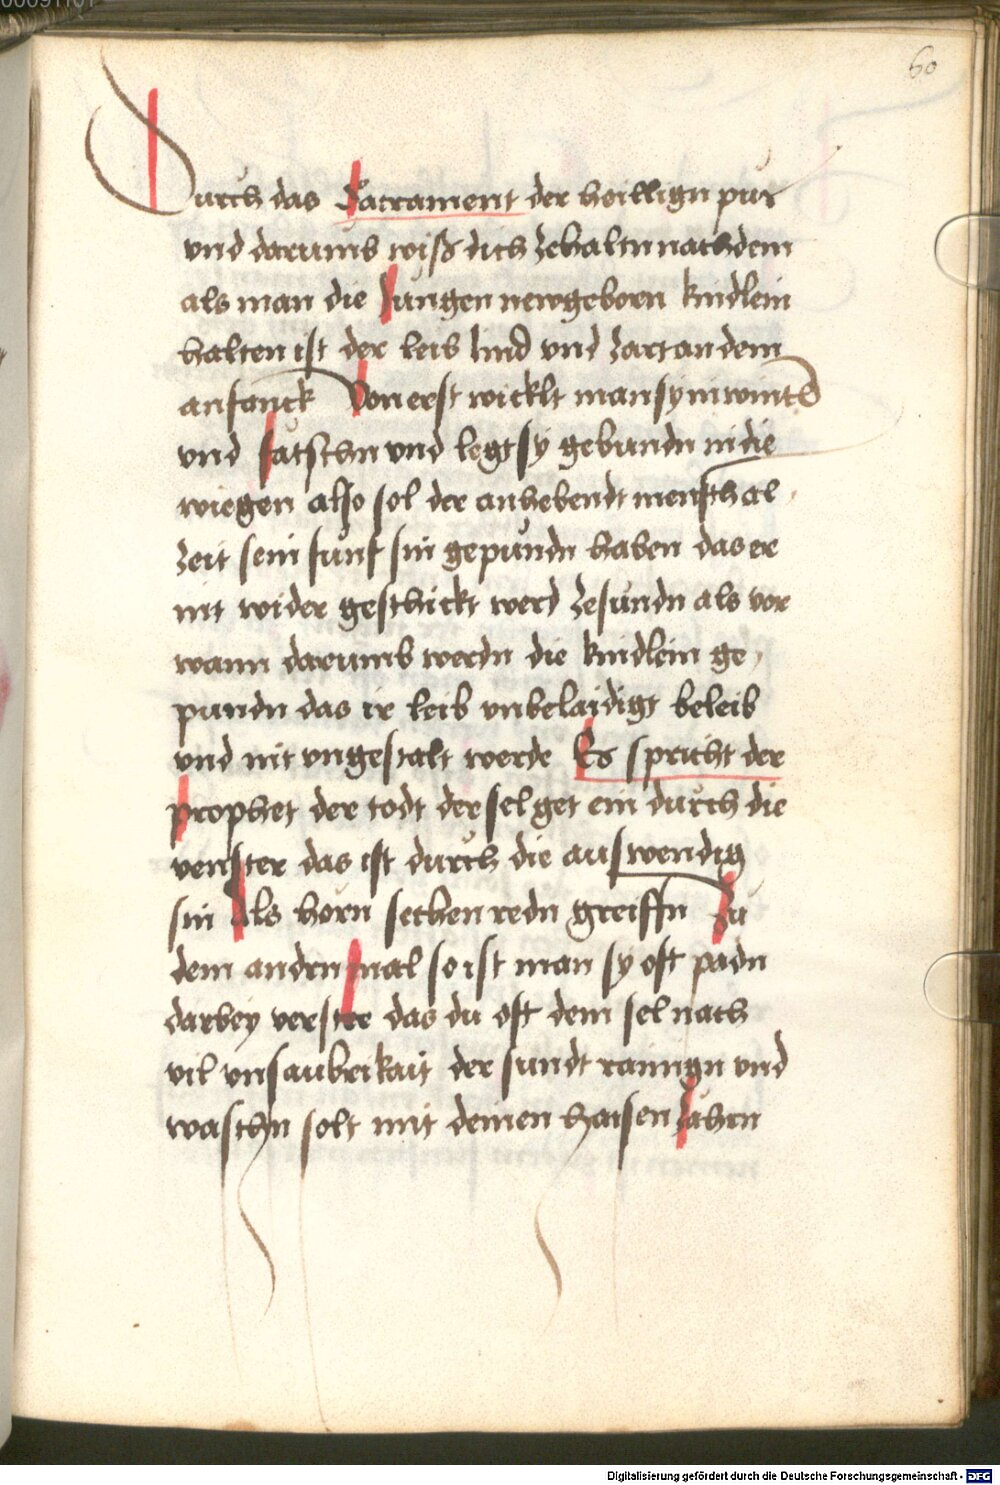 60
Durch das Sacrament der heillign pus
vnd darumb wiß dich zehaltn nachdem
als man die Jungen newgeborn kindlein
halten ist der leib lind vnd zart an dem
anfanck Von erst wicklt man sy in wintl
vnd fatschn vnd legt sy gebundn in die
wiegen also sol der anhebendt mensch al
zeit sein funf sin gepundn haben das er
nit wider geschickt werd zesundn als vor
wann darumb werdn die kindlein ge
pundn das ir leib vnbelaidigt beleib
vnd nit vngestalt werde Es spricht der
prophet der todt der sel get ein durch die
venster das ist durch die auswendig
sin Als horn sechen redn greiffn Zu
dem andrn mal so ist man sy oft padn
darbey verstee das du oft dem sel nach
vil vnsaubrikait der sundt rainign vnd
waschn solt mit deinen haisen zähern
Digitalisierung gefördert durch die Deutsche Forschungsgemeinschaft - DFG